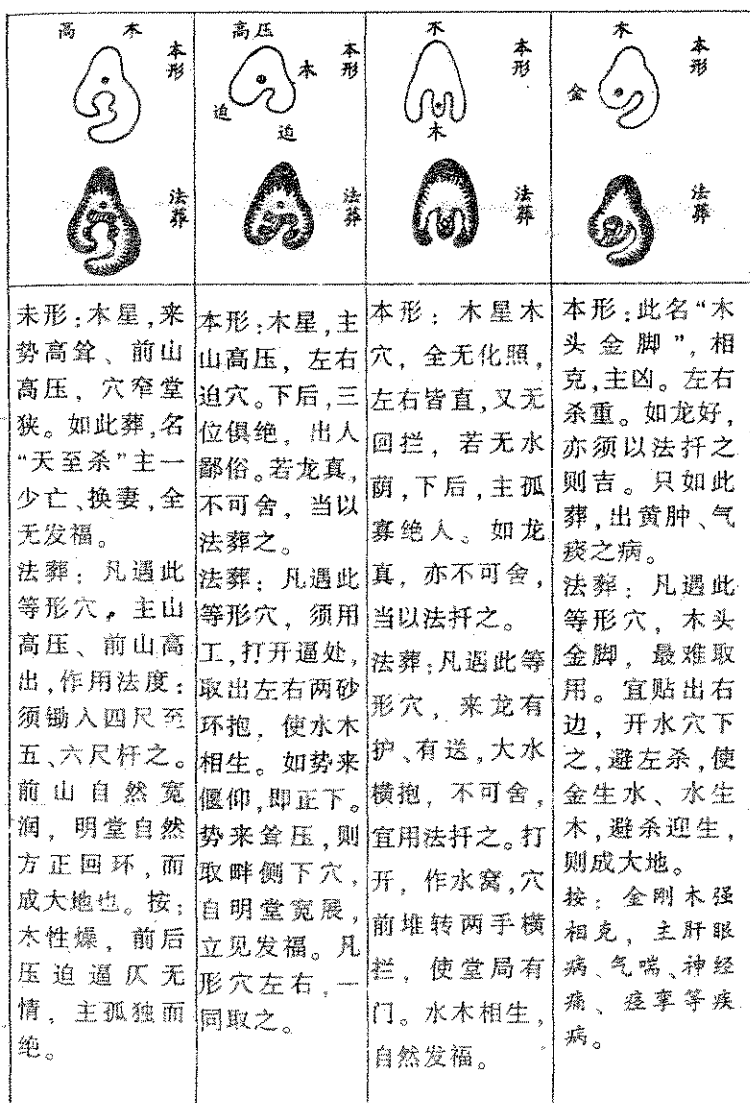 高 木
本形
法葬
未形：木星，来
势高耸、前山
高压，穴窄堂
狭。如此葬，名
“天至杀”主一
少亡、换妻，全
无发福。
法葬：凡遇此
等形穴，主山
高压、前山高
出，作用法度：
须锄入四尺至
五、六尺杆之。
前山自然宽
润，明堂自然
方正回环，而
成大地也。按：
木性燥，前后
压迫逼仄无
情，主孤独而
绝。
高压
木
迫
迫
本形
法葬
本形：木星，主
山高压，左右
迫穴。下后，三
位俱绝，出人
鄙俗。若龙真，
不可舍，当以
法葬之。
法葬：凡遇此
等形穴，须用
工，打开逼处，
取出左右两砂
环抱，使水木
相生。如势来
偃仰，即正下。
势来耸压，则
取畔侧下穴，
自明堂宽展，
立见发福。凡
形穴左右，一
同取之。
木
木
本形
法葬
本形：木星木
穴，全无化照，
左右皆直，又无
回拦，若无水
荫，下后，主孤
寡绝人。如龙
真，亦不可舍，
当以法扦之。
法葬：凡遇此等
形穴，来龙有
护、有送，大水
横抱，不可舍，
宜用法扦之。打
开，作水窝，穴
前堆转两手横
拦，使堂局有
门。水木相生，
自然发福。
木
金
本形
法葬
本形：此名“木
头金脚”，相
克，主凶。左右
杀重。如龙好，
亦须以法扦之
则吉。只如此
葬，出黄肿、气
痰之病。
法葬：凡遇此
等形穴，木头
金脚，最难取
用。宜贴出右
边，开水穴下
之，避左杀，使
金生水、水生
木，避杀迎生，
则成大地。
按：金刚木强
相克，主肝眼
病、气喘、神经
痛、痉挛等疾
病。